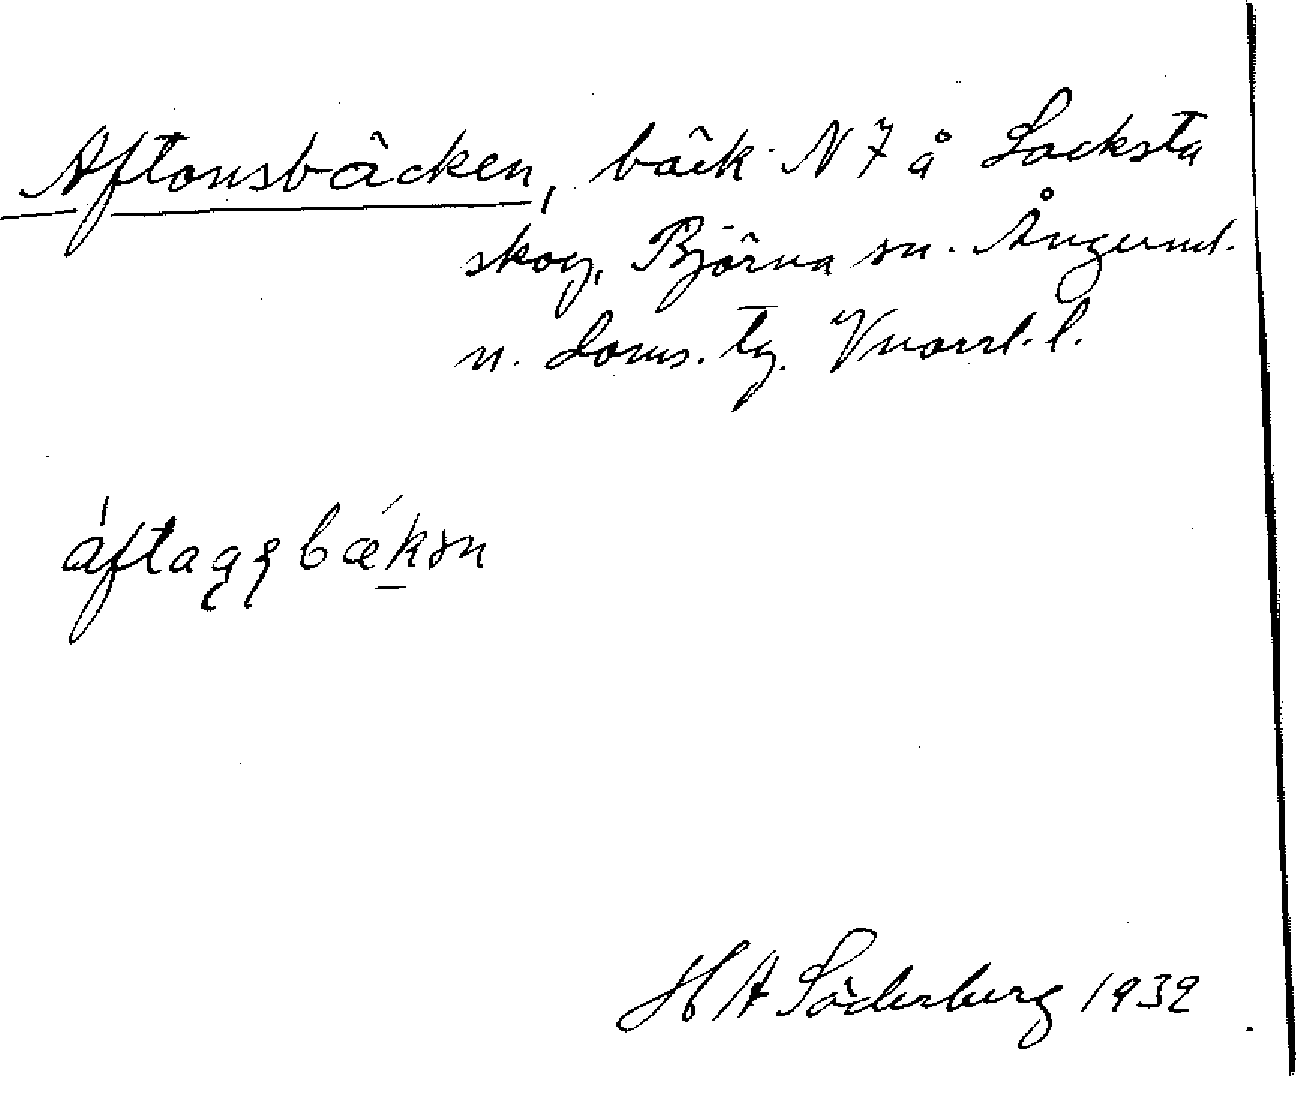 Aftonsbäcken, bäck N 7 å Locksta
skog, Björna sn. Ångerml.
n. doms. tg. Vnorrl. l.
H A Söderberg 1932